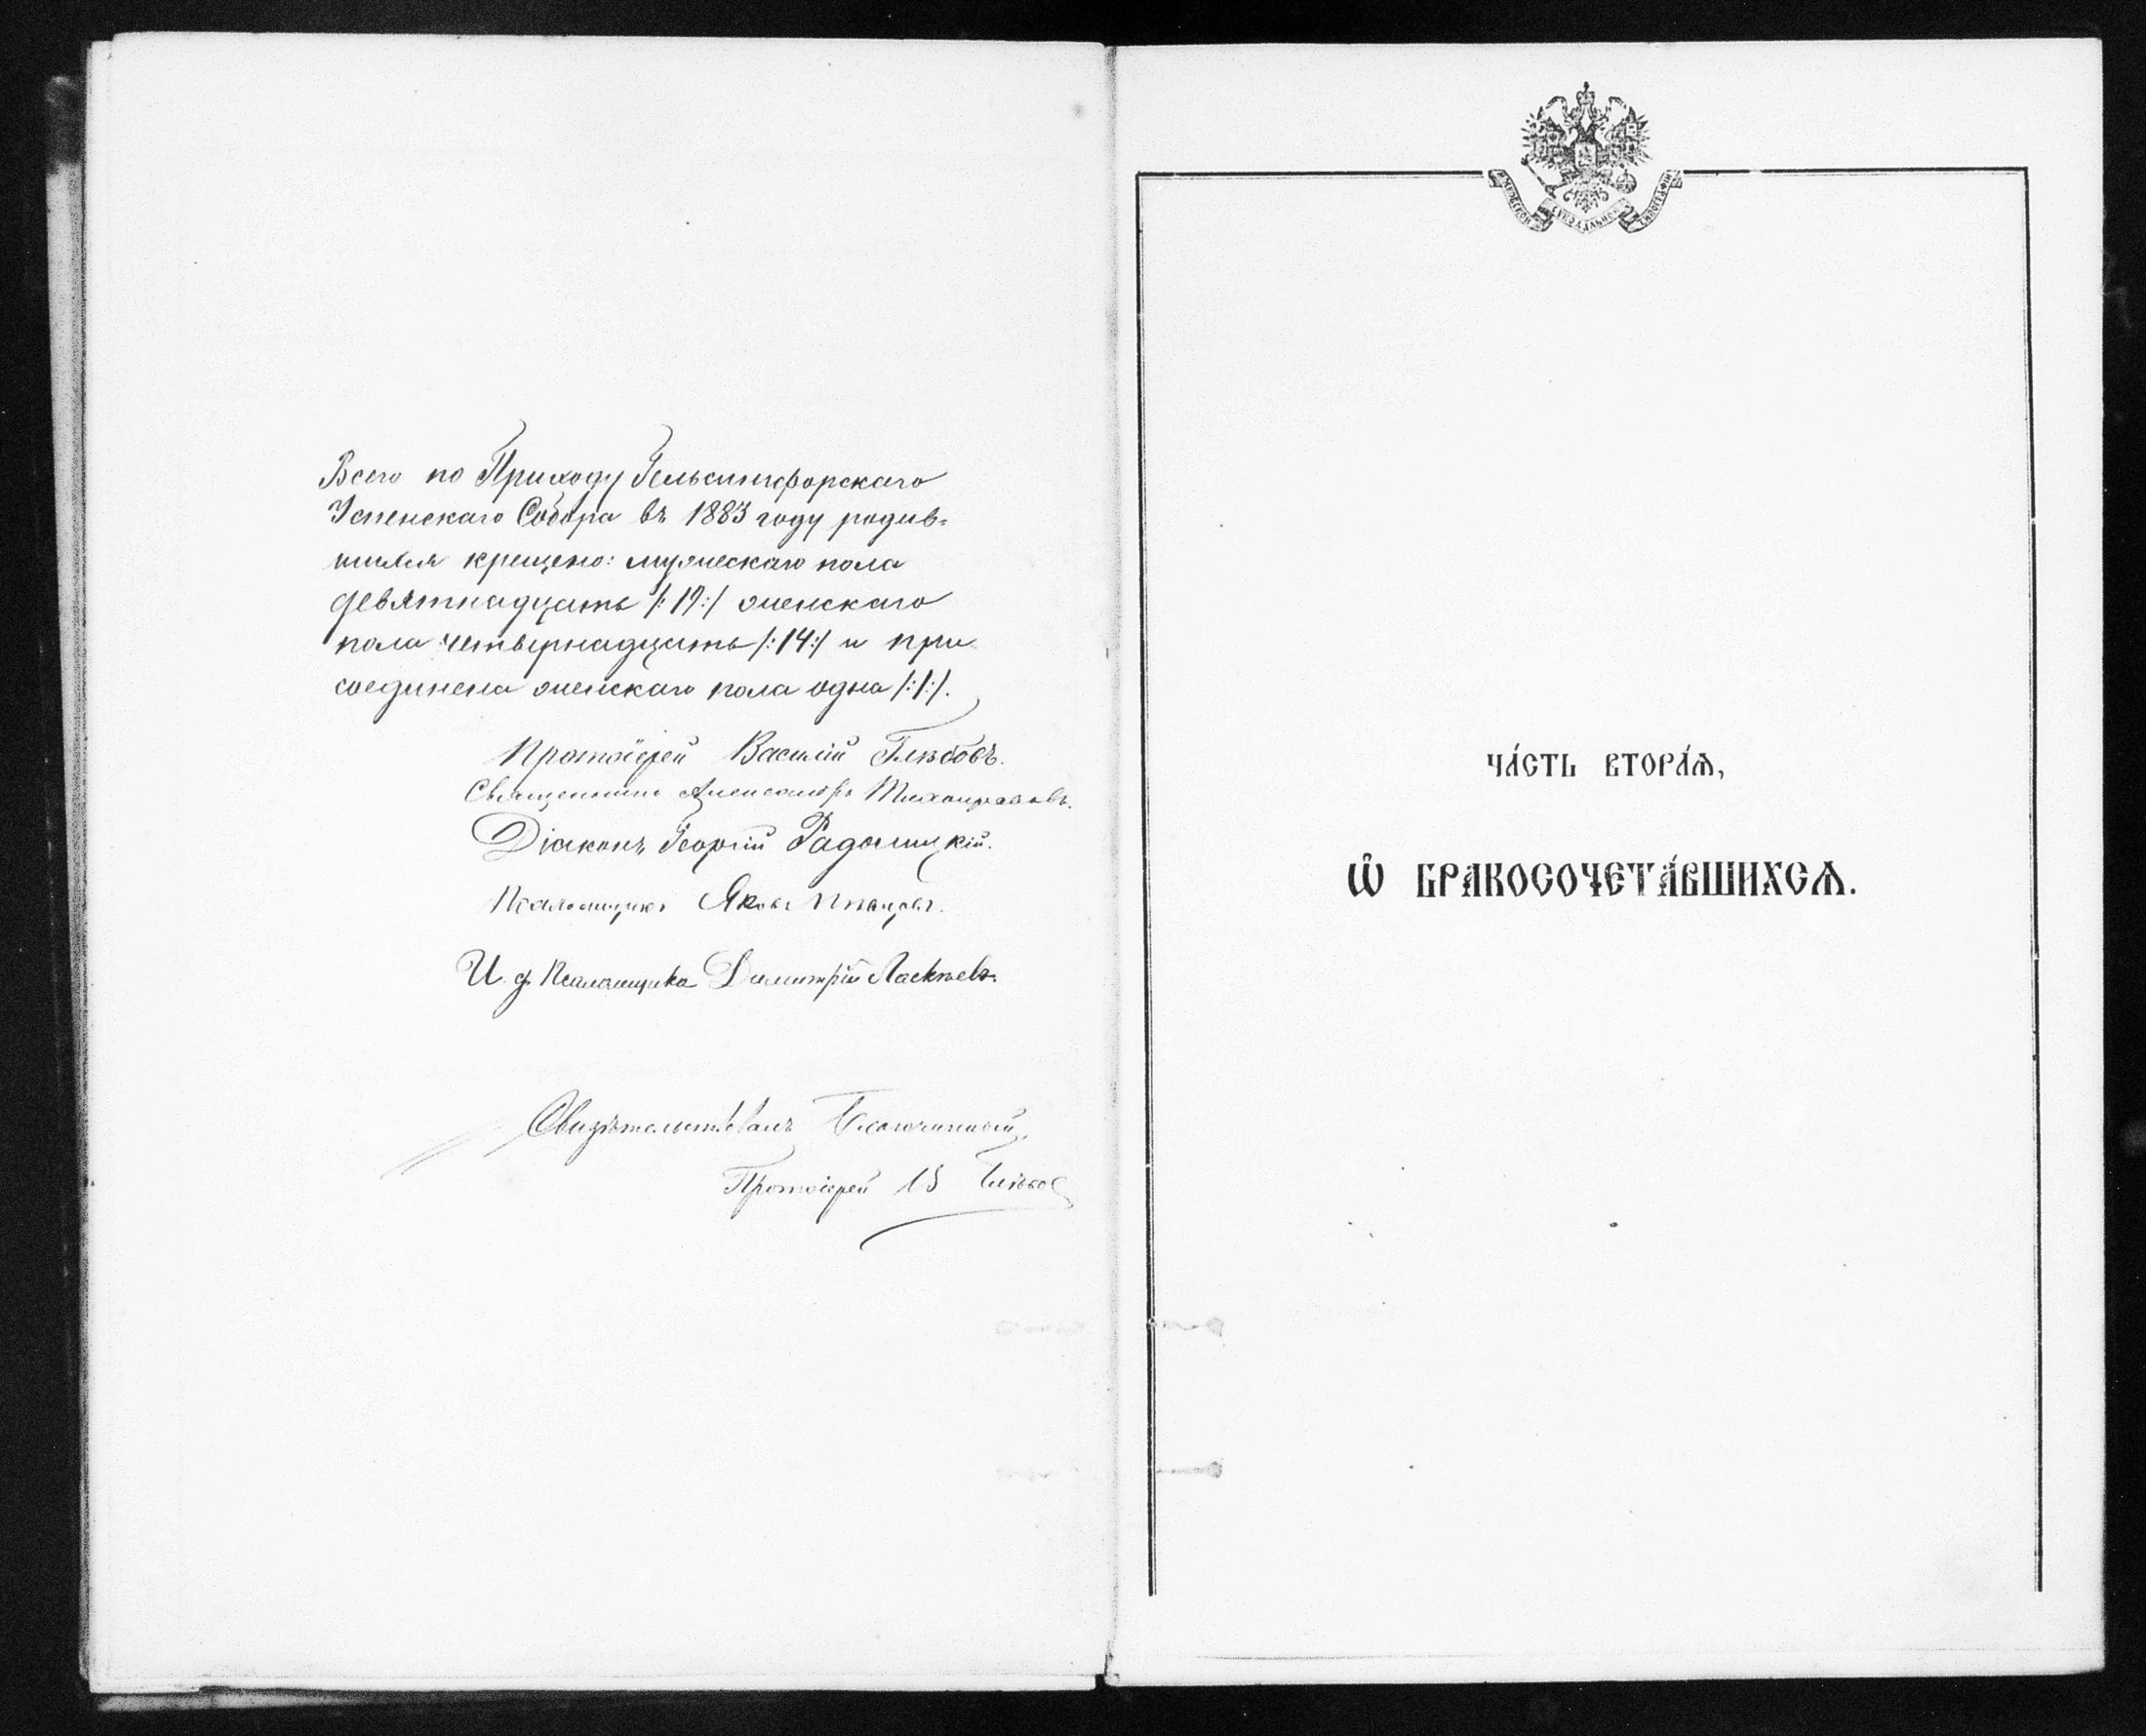 Всего по Приходу Гельсингфорскаго
Успенскаго Собора въ 1883 году родив-
шихся крещено: мужескаго пола
девятнадцать /:19:/ женскаго
пола четырнадцать /:14:/ и при
соединена женскаго пола одна /:1:/.
Протоіерей Василій Глѣбовъ.
Священникъ Александръ
Діаконъ Георгій Радомицкій.
Псаломщикъ Яковъ
И. д. Псаломщика Димитрій
Свидѣтельствовалъ Благочинный,
Протоіерей В Глѣбов
СѴНОДАЛЬНОЙ
ЧА́СТЬ ВТОРА́Ѧ,
Ѡ҆ БРАКОСОЧЕТА́ВШИХСѦ.